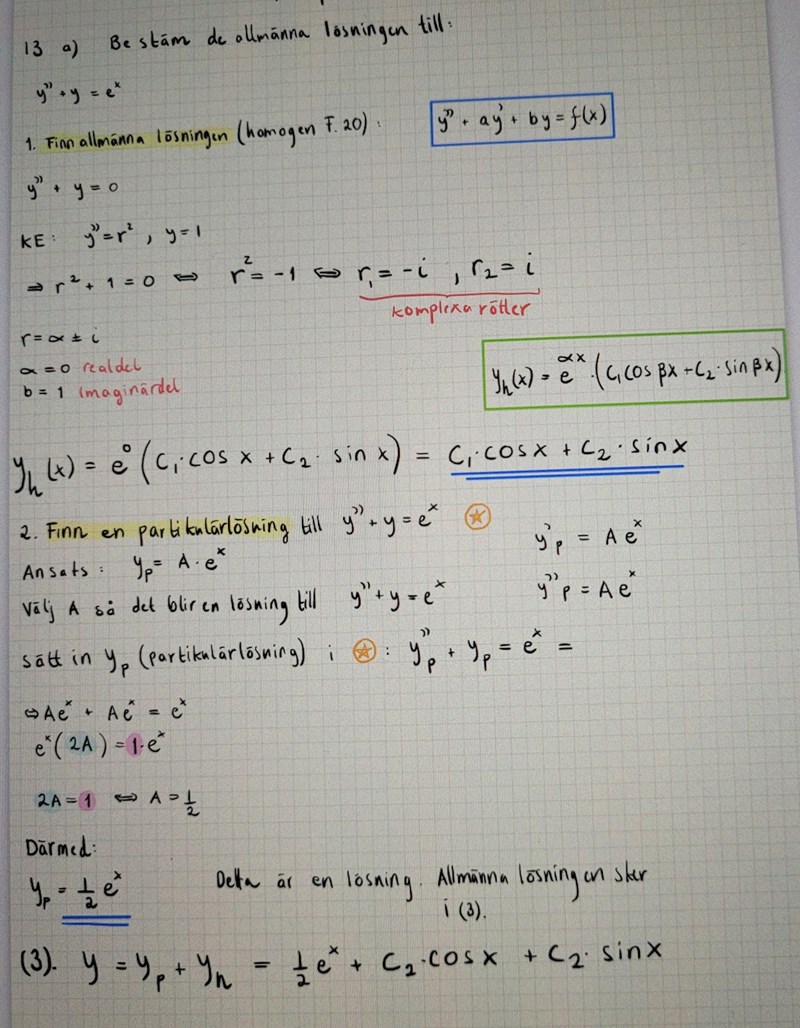 13 a) Bestäm de allmänna lösningen till:
y'' + y = e^x
1. Finn allmänna lösningen (homogen F.20): y'' + ay' + by = f(x)
y'' + y = 0
KE: y'' = r², y = 1
⇒ r² + 1 = 0 ⇔ r² = -1 ⇔ r₁ = -i, r₂ = i
komplexa rötter
r = α ± i
α = 0 realdel
b = 1 imaginärdel
y_h(x) = e^αx · (C₁ cos βx + C₂ · sin βx)
y_h(x) = e^0 (C₁ · cos x + C₂ · sin x) = C₁ · cos x + C₂ · sin x
2. Finn en partikulärlösning till y'' + y = e^x ⍟
Ansats: y_p = A · e^x
y'_p = A e^x
Välj A så det blir en lösning till y'' + y = e^x
y''_p = A e^x
sätt in y_p (partikulärlösning) i ⍟: y''_p + y_p = e^x =
⇔ Ae^x + Ae^x = e^x
e^x (2A) = 1 · e^x
2A = 1 ⇔ A = 1/2
Därmed:
y_p = 1/2 e^x
Detta är en lösning. Allmänna lösningen sker
i (3).
(3). y = y_p + y_h = 1/2 e^x + C₂ · cos x + C₂ · sin x